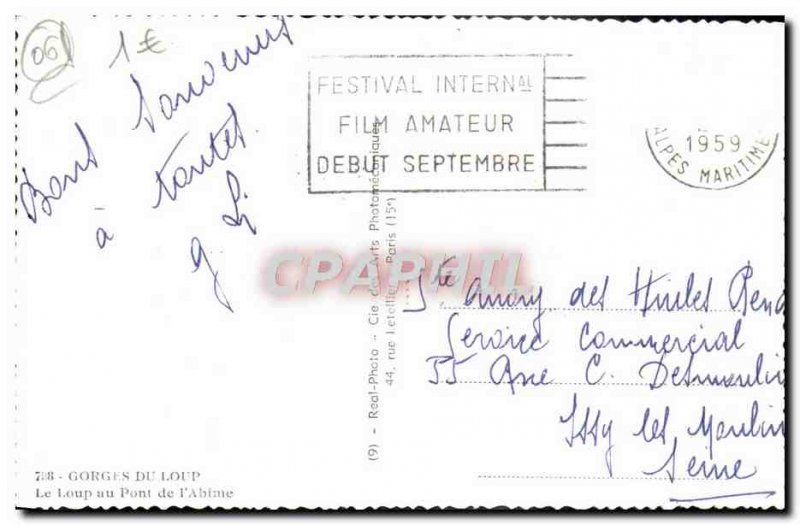 06
1€
Bons Souvenirs
à toutes.
FESTIVAL INTERNAL
FILM AMATEUR
DEBUT SEPTEMBRE
1959
ALPES MARITIME
CPAPHIL
(9) - Real-Photo - Cie des Arts Photomécaniques
44, rue Letellier, Paris (15e)
Sté des Huiles
Service Commercial
55 Ave C. Desmoulin
Issy les Moulin
Seine
788 - GORGES DU LOUP
Le Loup au Pont de l'Abîme